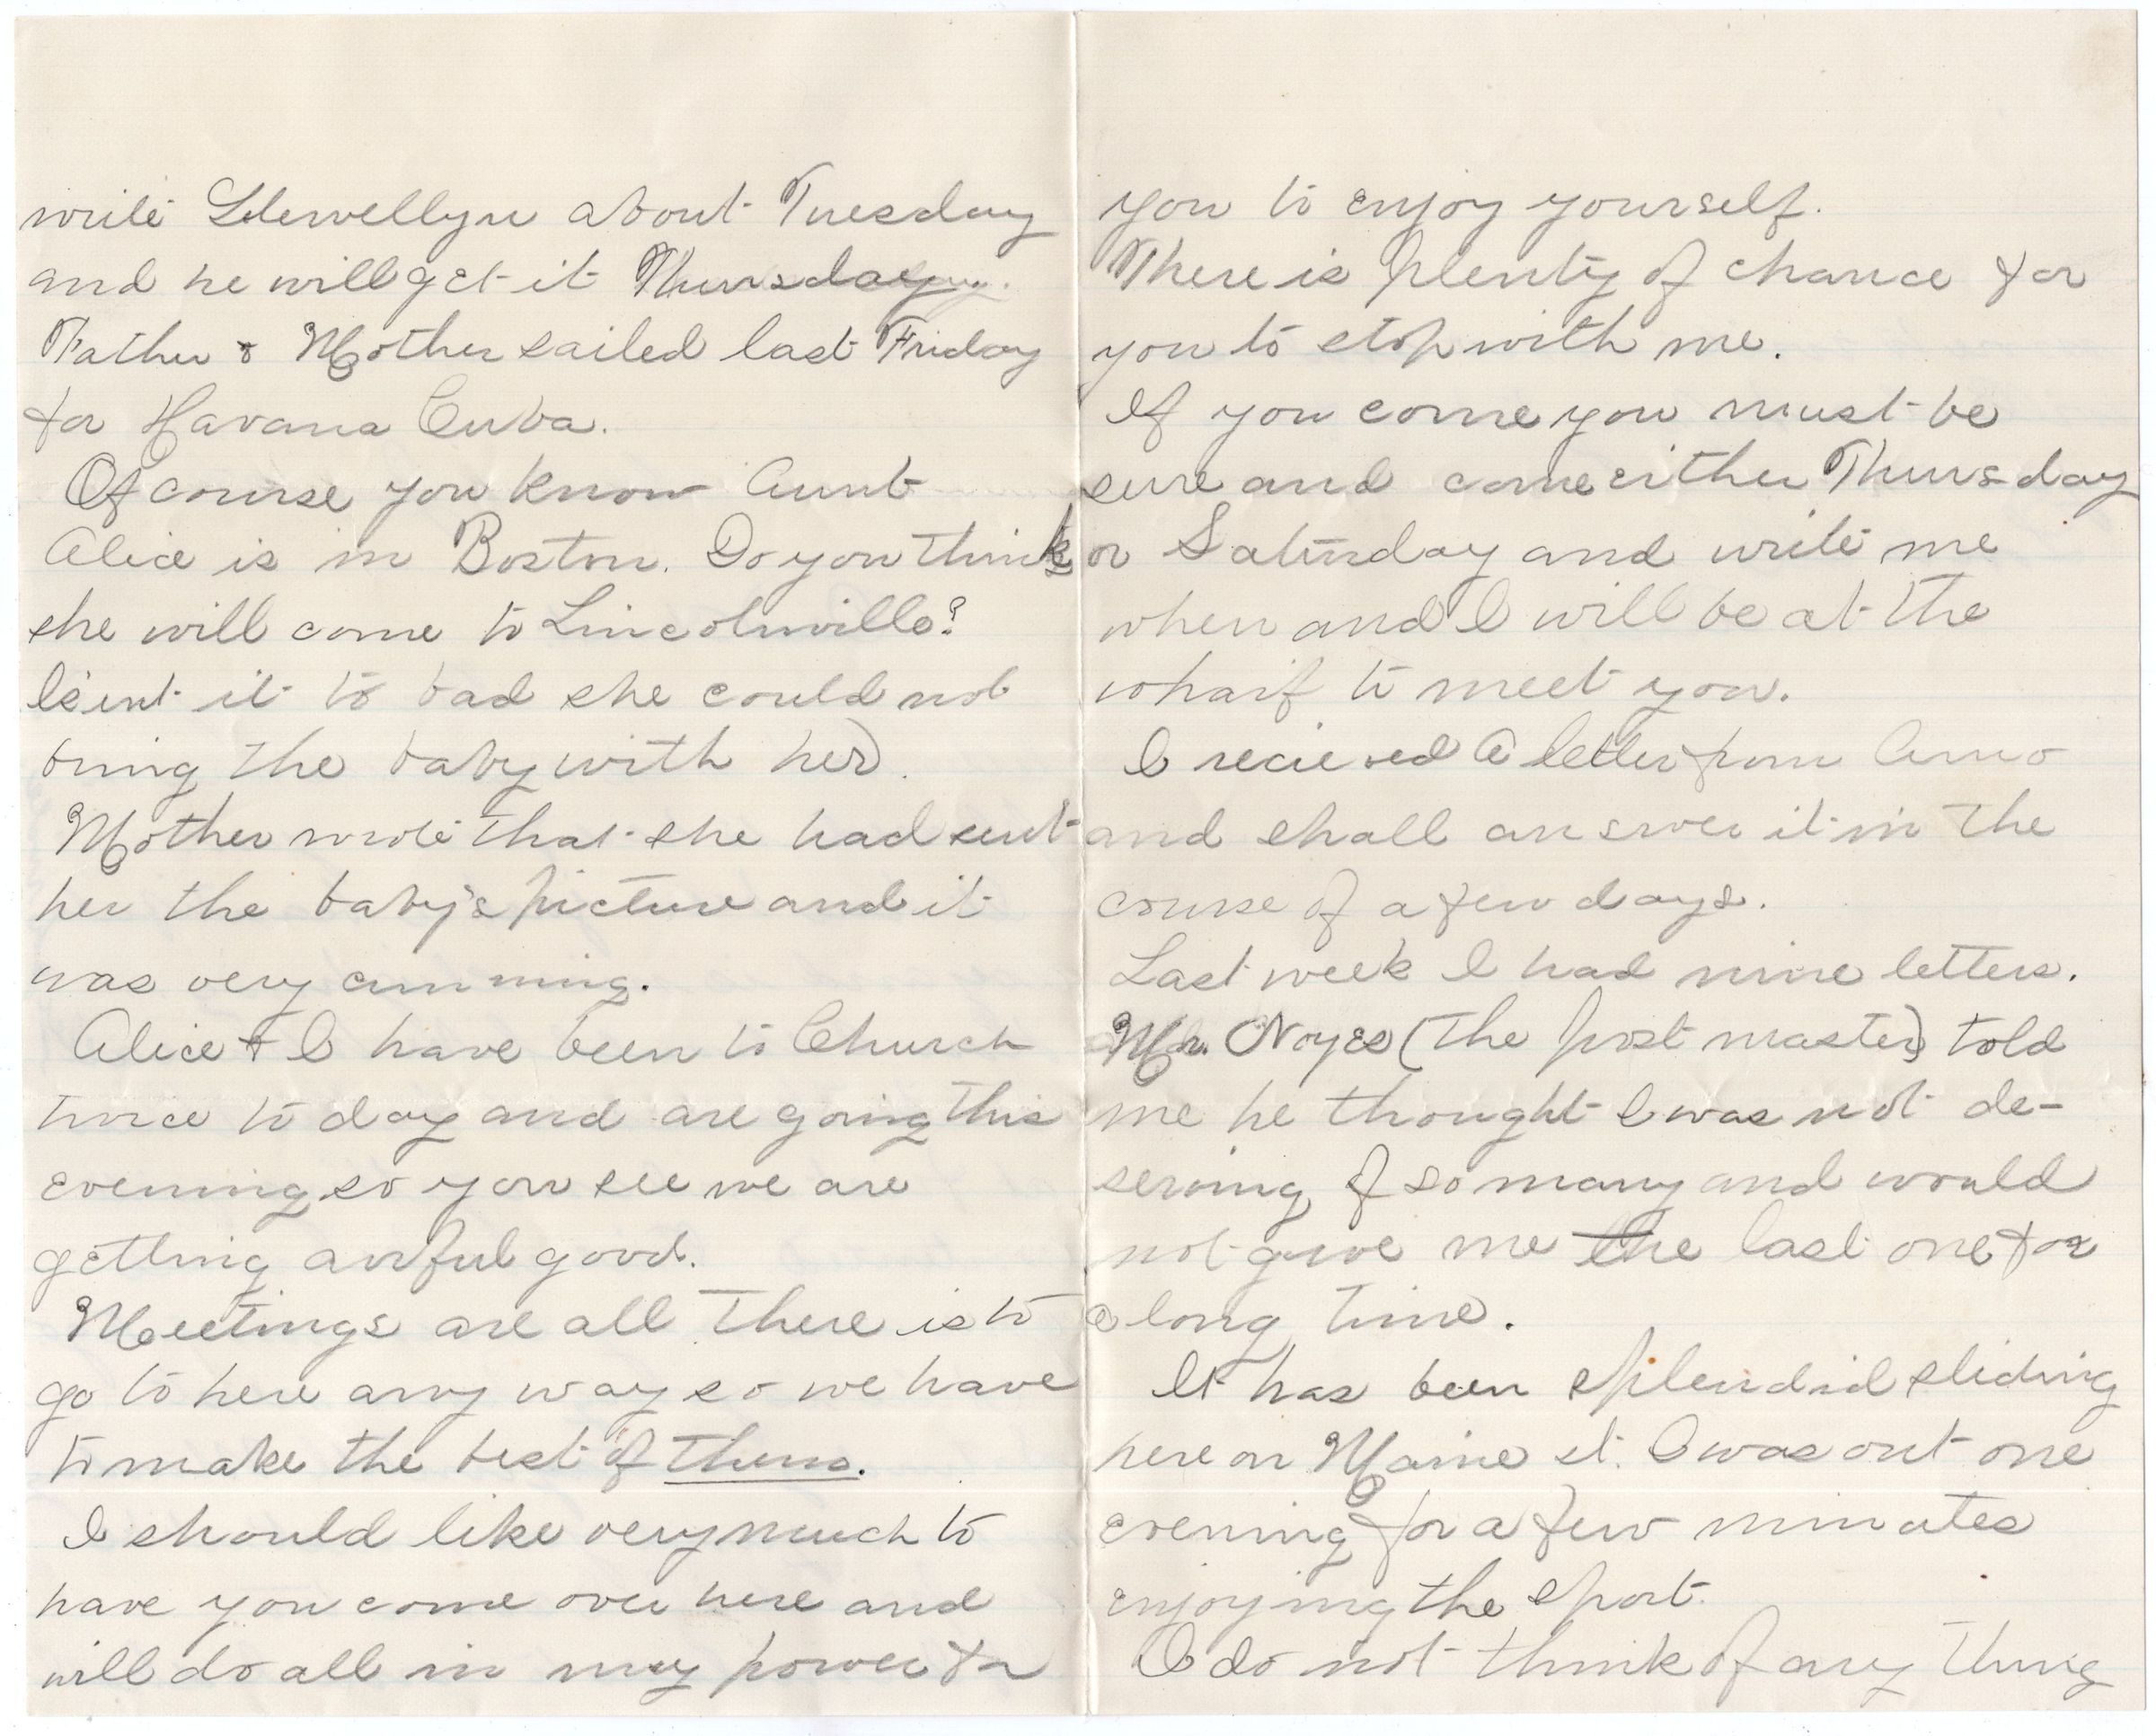 write Llewellyn about Tuesday
and he will get it Thursday.
Father & Mother sailed last Friday
for Havana Cuba.
Of course you know Aunt
Alice is in Boston. Do you think
she will come to Lincolnville?
Is'ent it to bad she could not
bring the baby with her.
Mother wrote that she had sent
her the baby's picture and it
was very cunning.
Alice & I have been to Church
twice to day and are going this
evening so you see we are
getting awful good.
Meetings are all there is to
go to here any way so we have
to make the best of them.
I should like very much to
have you come over here and
will do all in my power for
you to enjoy yourself.
There is plenty of chance for
you to stop with me.
If you come you must be
sure and come either Thursday
or Saturday and write me
when and I will be at the
wharf to meet you.
I recieved a letter from
and shall answer it in the
course of a few days.
Last week I had nine letters.
Mr. Noyes (the post master) told
me he thought I was not de-
serving of so many and would
not give me the last one for
a long time.
It has been splendid sliding
here on Maine st. I was out one
evening for a few minutes
enjoying the sport.
I do not think of any thing